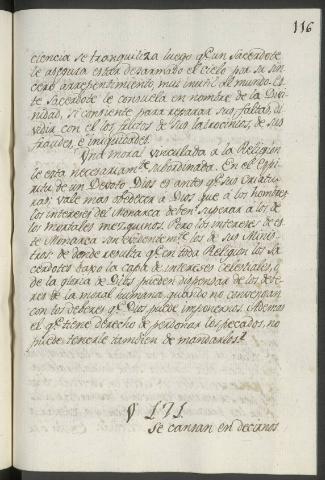 116
ciencia se tranquiliza luego qe. un Sacerdote
le asegura estar desarmado el cielo por su sin
cero arrepentimiento, mui inutil al mundo. Es
te Sacerdote le consuela en nombre de la Divi
nidad, si consiente para reparar sus faltas, di
vidir con el los frutos de sus latrocinios, de sus
fraudes, e iniquidades.
Una moral vinculada a la Religion
le esta necesariamte. subordinada. En el espi
ritu de un Devoto Dios es antes qe. sus criatu
ras; vale mas obedecer à Dios que à los hombres
los intereses del Monarca deben superar à los de
los mortales mezquinos. Pero los intereses de es
te Monarca son evidentemte. los de sus Minis
tros: de donde resulta qe. en toda Religion los Sa
cerdotes baxo la capa de intereses celestiales, ò
de la gloria de Dios pueden dispensar de los debe
res de la moral humana, quando no convengan
con los deberes qe. Dios puede imponernos. Ademas
el qe. tiene derecho de perdonar los pecados, no
puede tenerle tambien de mandarlos?
§ 171.
Se cansan en decirnos